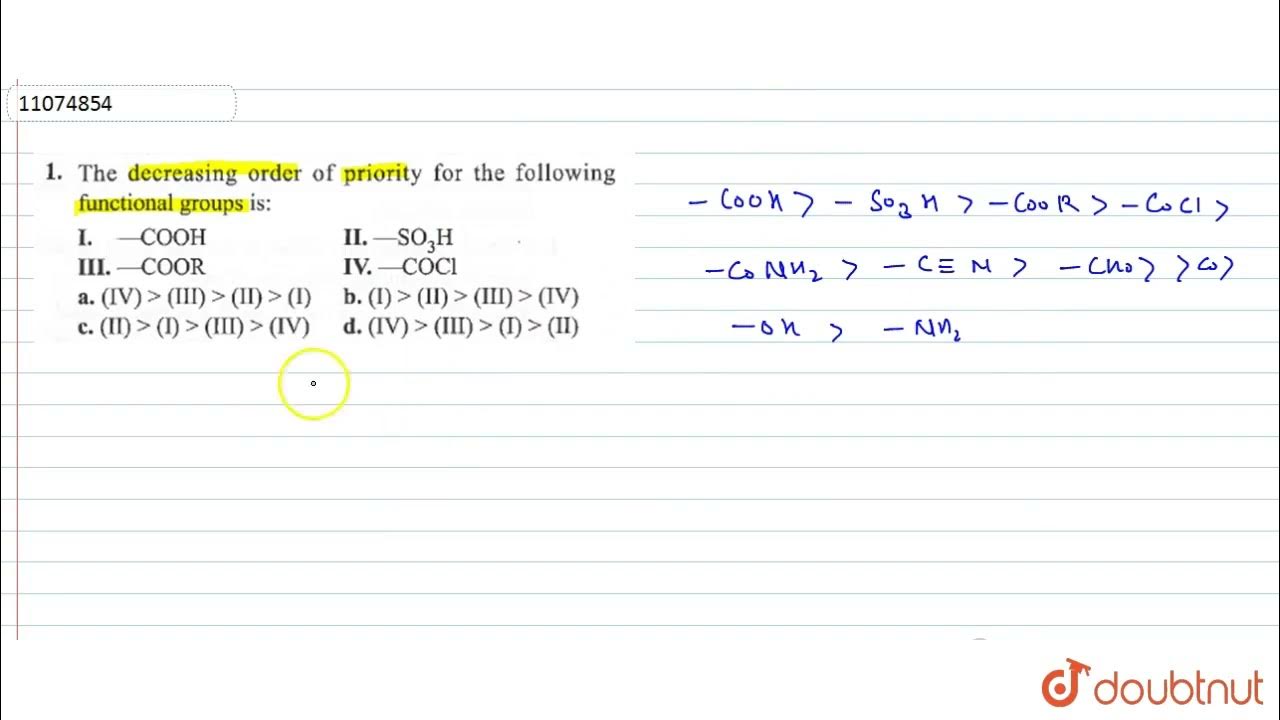 11074854
1. The decreasing order of priority for the following
functional groups is:
I. —COOH II. —SO₃H
III. —COOR IV. —COCl
a. (IV) > (III) > (II) > (I) b. (I) > (II) > (III) > (IV)
c. (II) > (I) > (III) > (IV) d. (IV) > (III) > (I) > (II)
– COOH > – SO₃H > – COOR > – COCl >
– CONH₂ > – C≡N > – CHO > >CO >
– OH > – NH₂
doubtnut